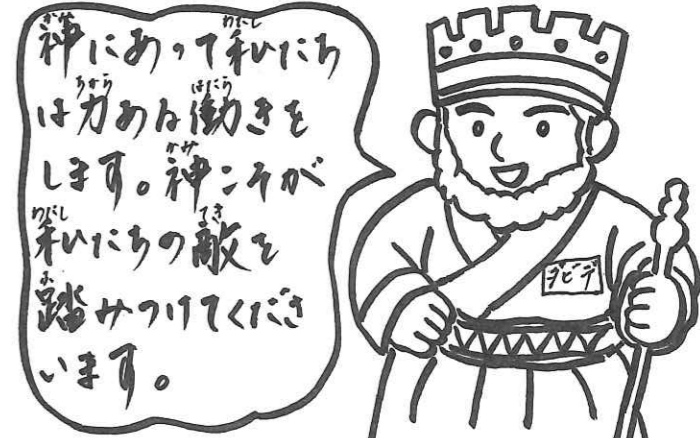 神にあって私たち
は力ある働きを
します。神こそが
私たちの敵を
踏みつけてくださ
います。
ダビデ